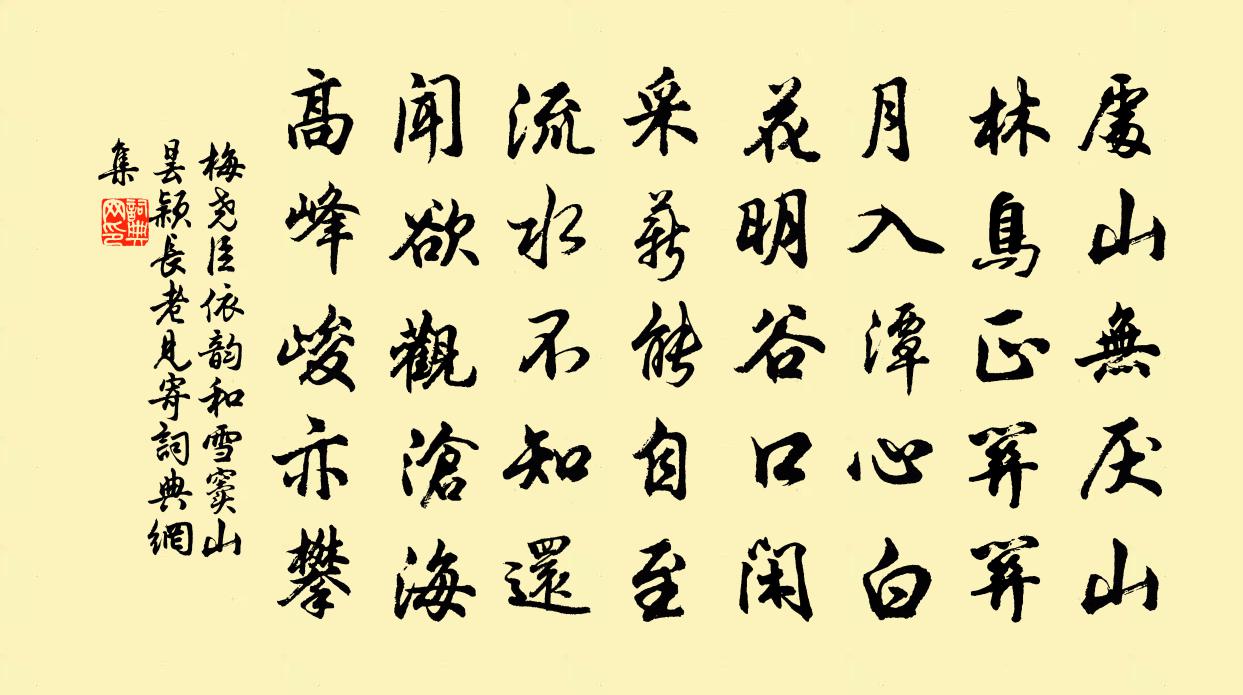 處山無厌山
林鳥正關關
月入潭心白
花明谷口閑
采薪能自至
流水不知還
聞欲觀滄海
高峰峻亦攀
梅尧臣依韵和雪窦山
昙穎長老見寄詞典網
集
詞典网印